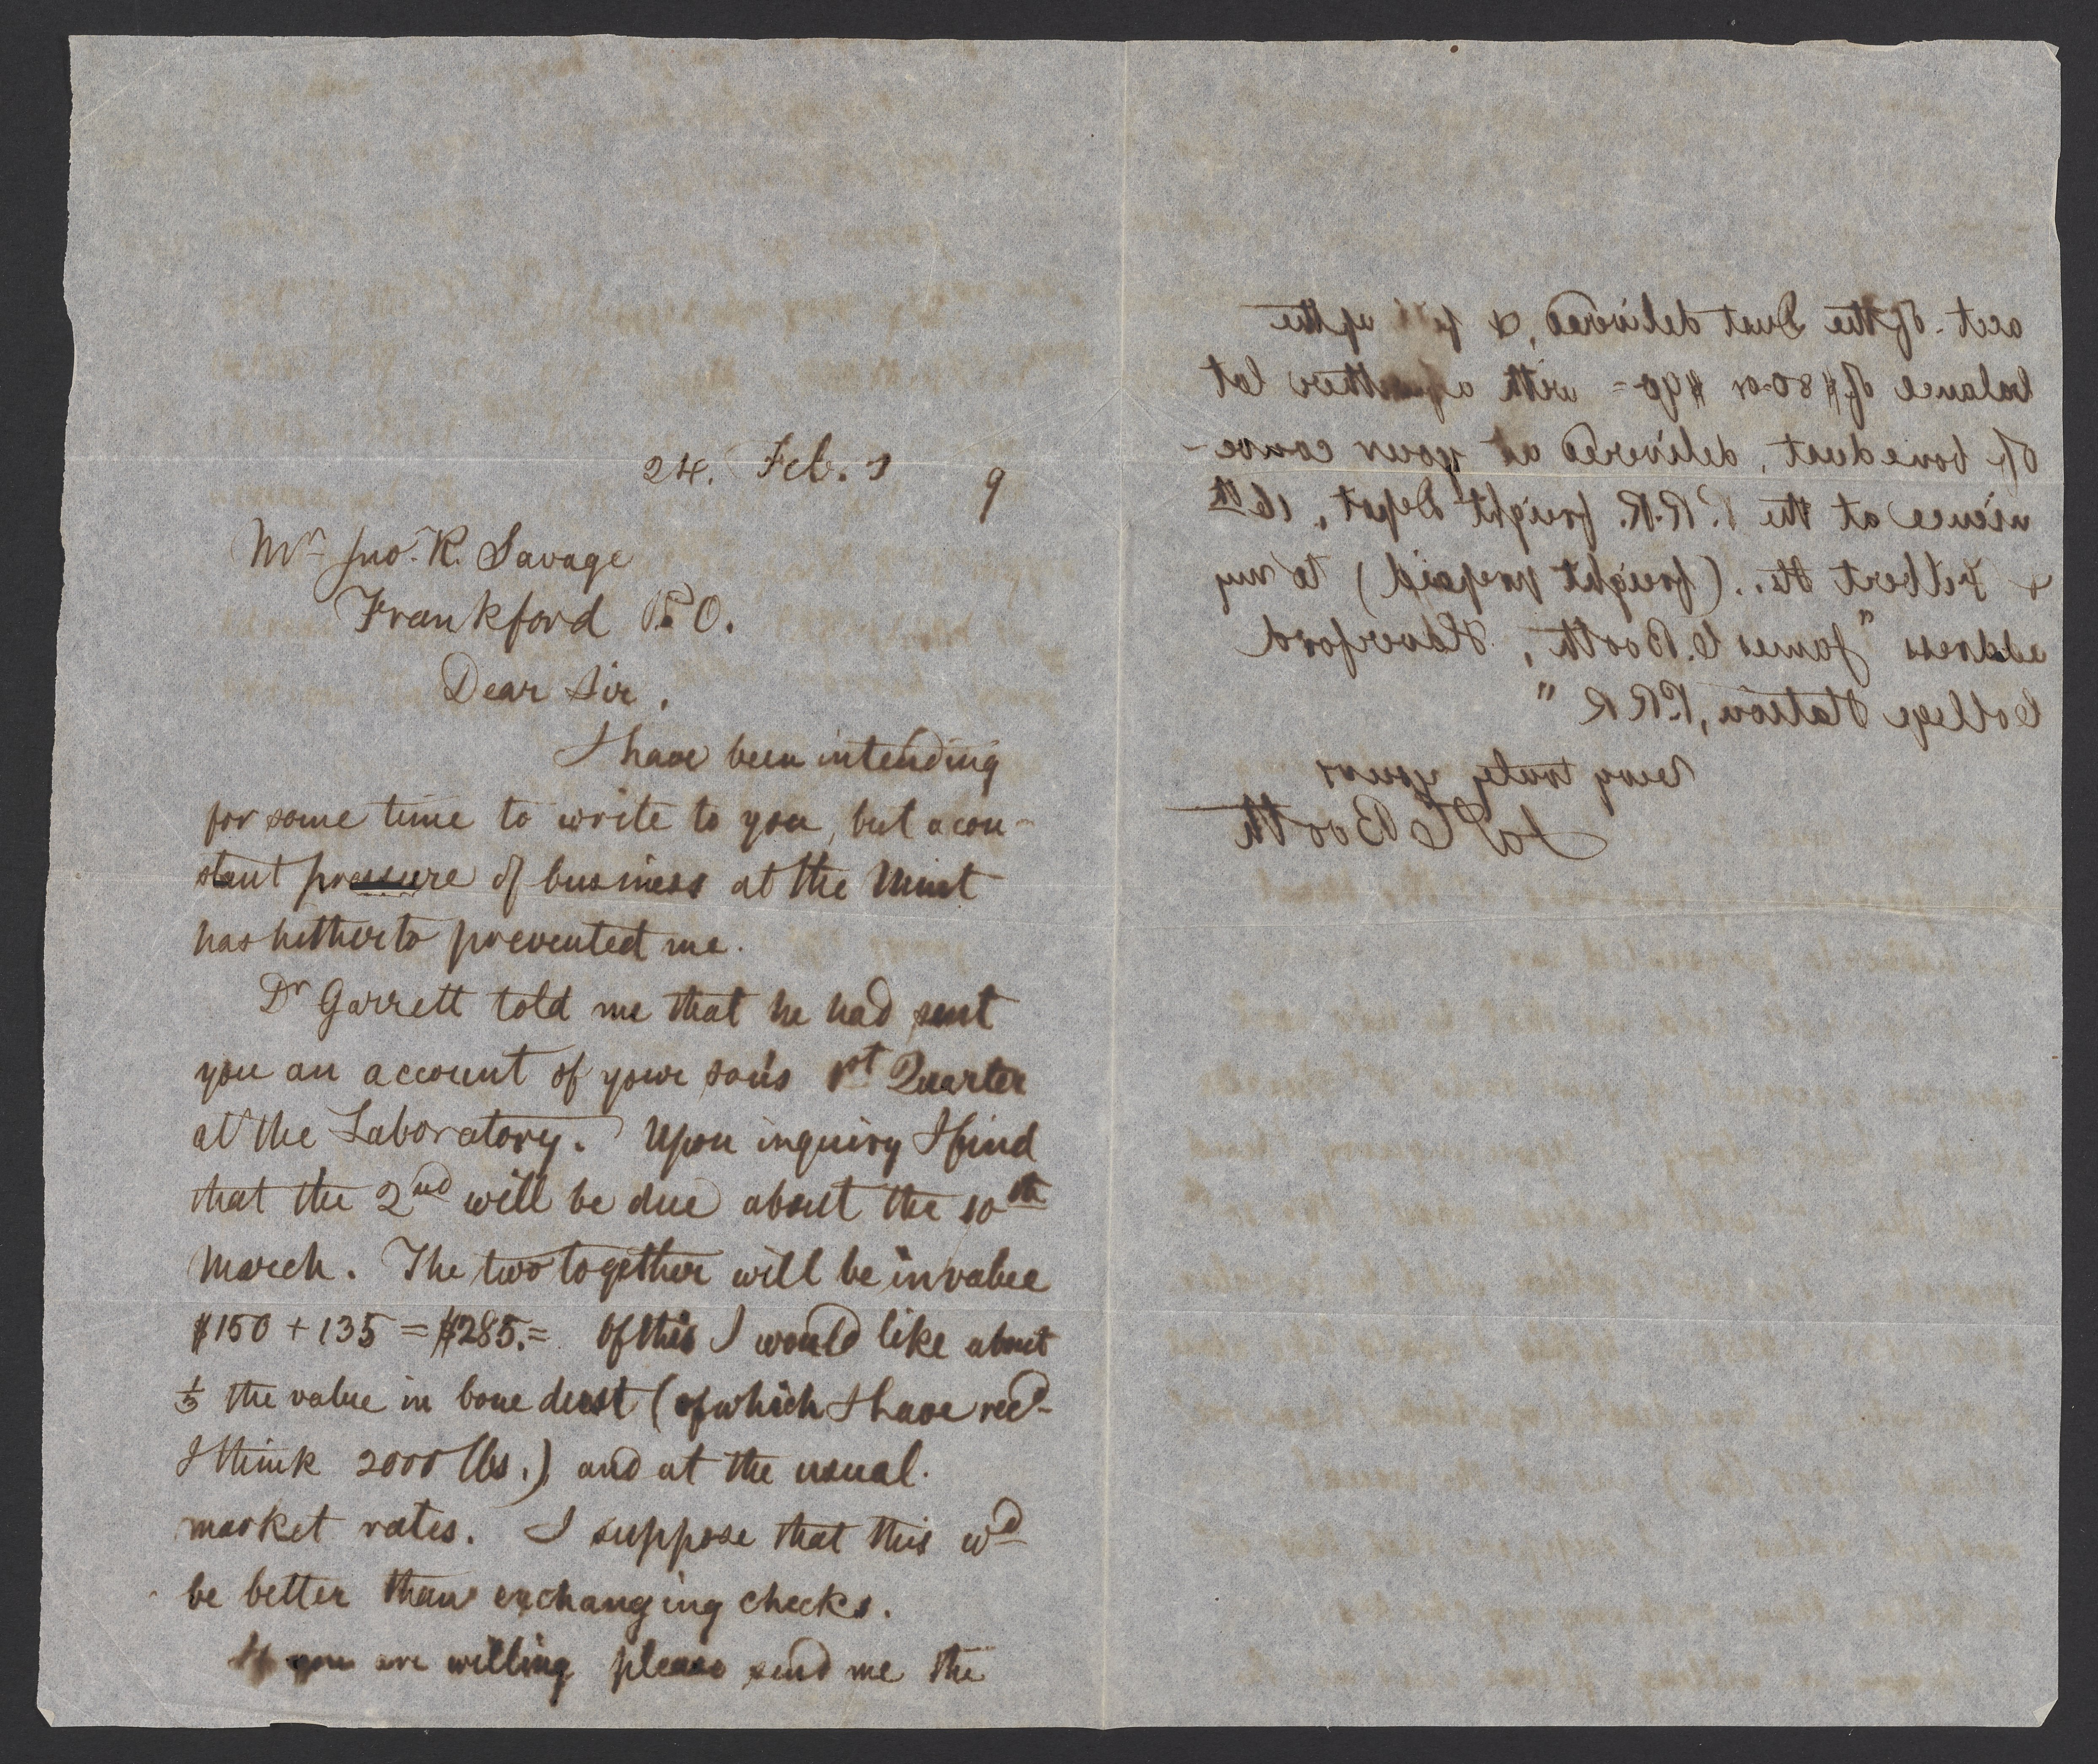 24. Feb. 7 9
Mr Jno. R. Savage
Frankford P.O.
Dear Sir,
I have been intending
for some time to write to you, but a con-
stant pressure of business at the Mint
has hitherto prevented me.
Dr Garrett told me that he had sent
you an account of your son's 1st Quarter
at the Laboratory. Upon inquiry I find
that the 2nd will be due about the 10th
March. The two together will be in value
$150 + 135 = $285.= Of this I would like about
⅓ the value in bone dust (of which I have recd
I think 2000 lbs.) and at the usual
market rates. I suppose that this wd
be better than exchanging checks.
If you are willing please send me the
acct. of the Dust delivered, & fill up the
balance of $80 or $90= with a further lot
of bonedust, delivered at your conve-
nience at the P.R.R. freight Depot, 16th
& Filbert Sts. (freight prepaid) to my
address "James C. Booth, Haverford
College Station, P.R.R"
Very truly yours
Jas C Booth